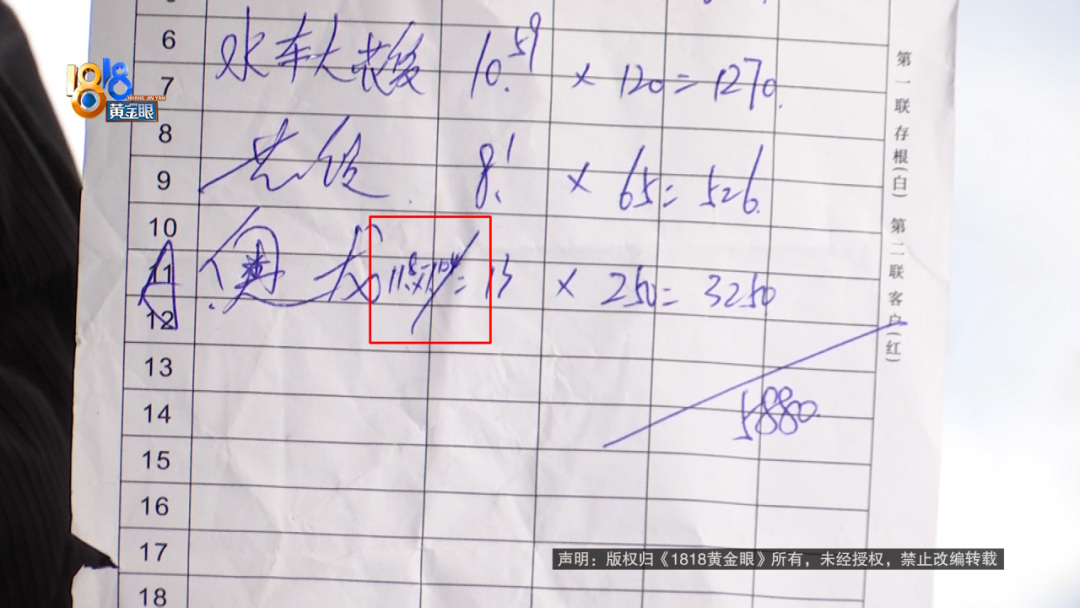 1818
黄金眼
6
7
8
9
10
11
12
13
14
15
16
17
18
水车大芯
10.59 × 120 = 1270
8.1 × 65 = 526
奥
= 13 × 250 = 3250
5880
第一联存根(白) 第二联客户(红)
声明：版权归《1818黄金眼》所有，未经授权，禁止改编转载